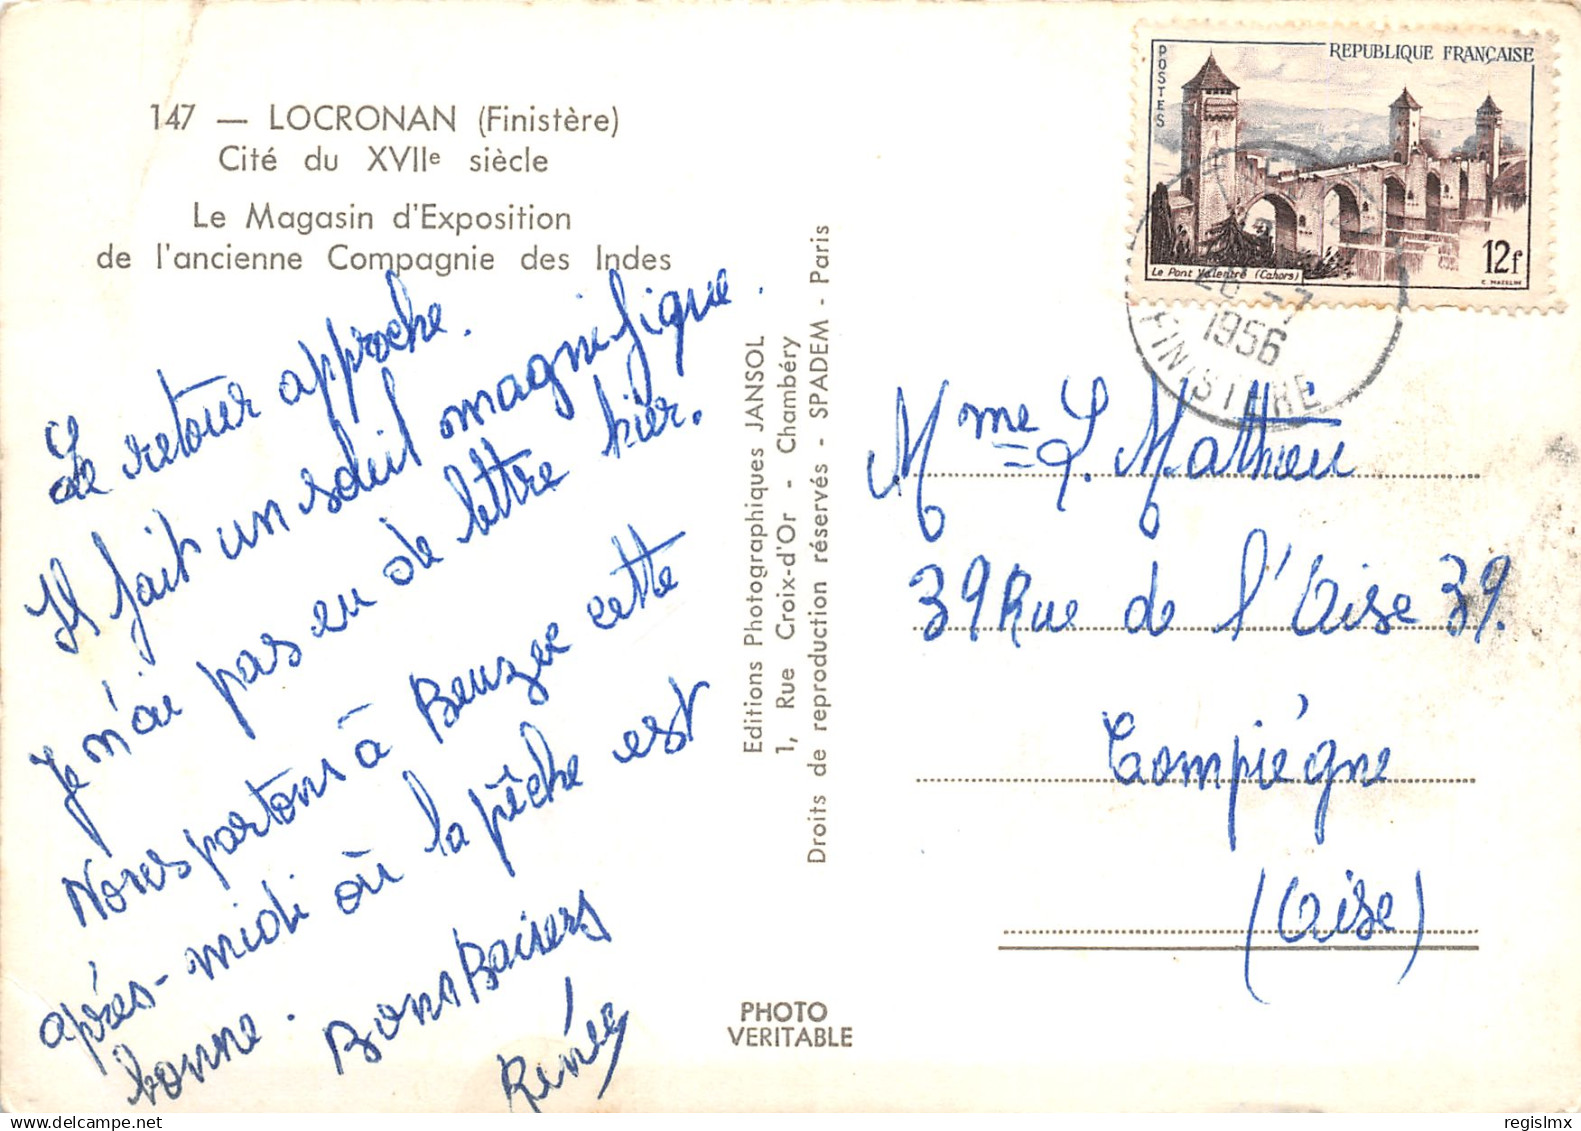 147 — LOCRONAN (Finistère)
Cité du XVIIe siècle
Le Magasin d'Exposition
de l'ancienne Compagnie des Indes
Le retour approche.
Il fait un soleil magnifique.
Je n'ai pas eu de lettre hier.
Nous partons à Beuzec cette
après-midi où la pêche est
bonne. Bons Baisers
Renée
Editions Photographiques JANSOL
1, Rue Croix-d'Or - Chambéry
Droits de reproduction réservés - SPADEM - Paris
PHOTO
VERITABLE
POSTES
REPUBLIQUE FRANÇAISE
12f
Le Pont Valentré (Cahors)
C. MAZELIN
26 -7
1956
FINISTERE
Mme L. Mathieu
39 Rue de l'Oise 39.
Compiégne
(Oise)
www.regislmx.com